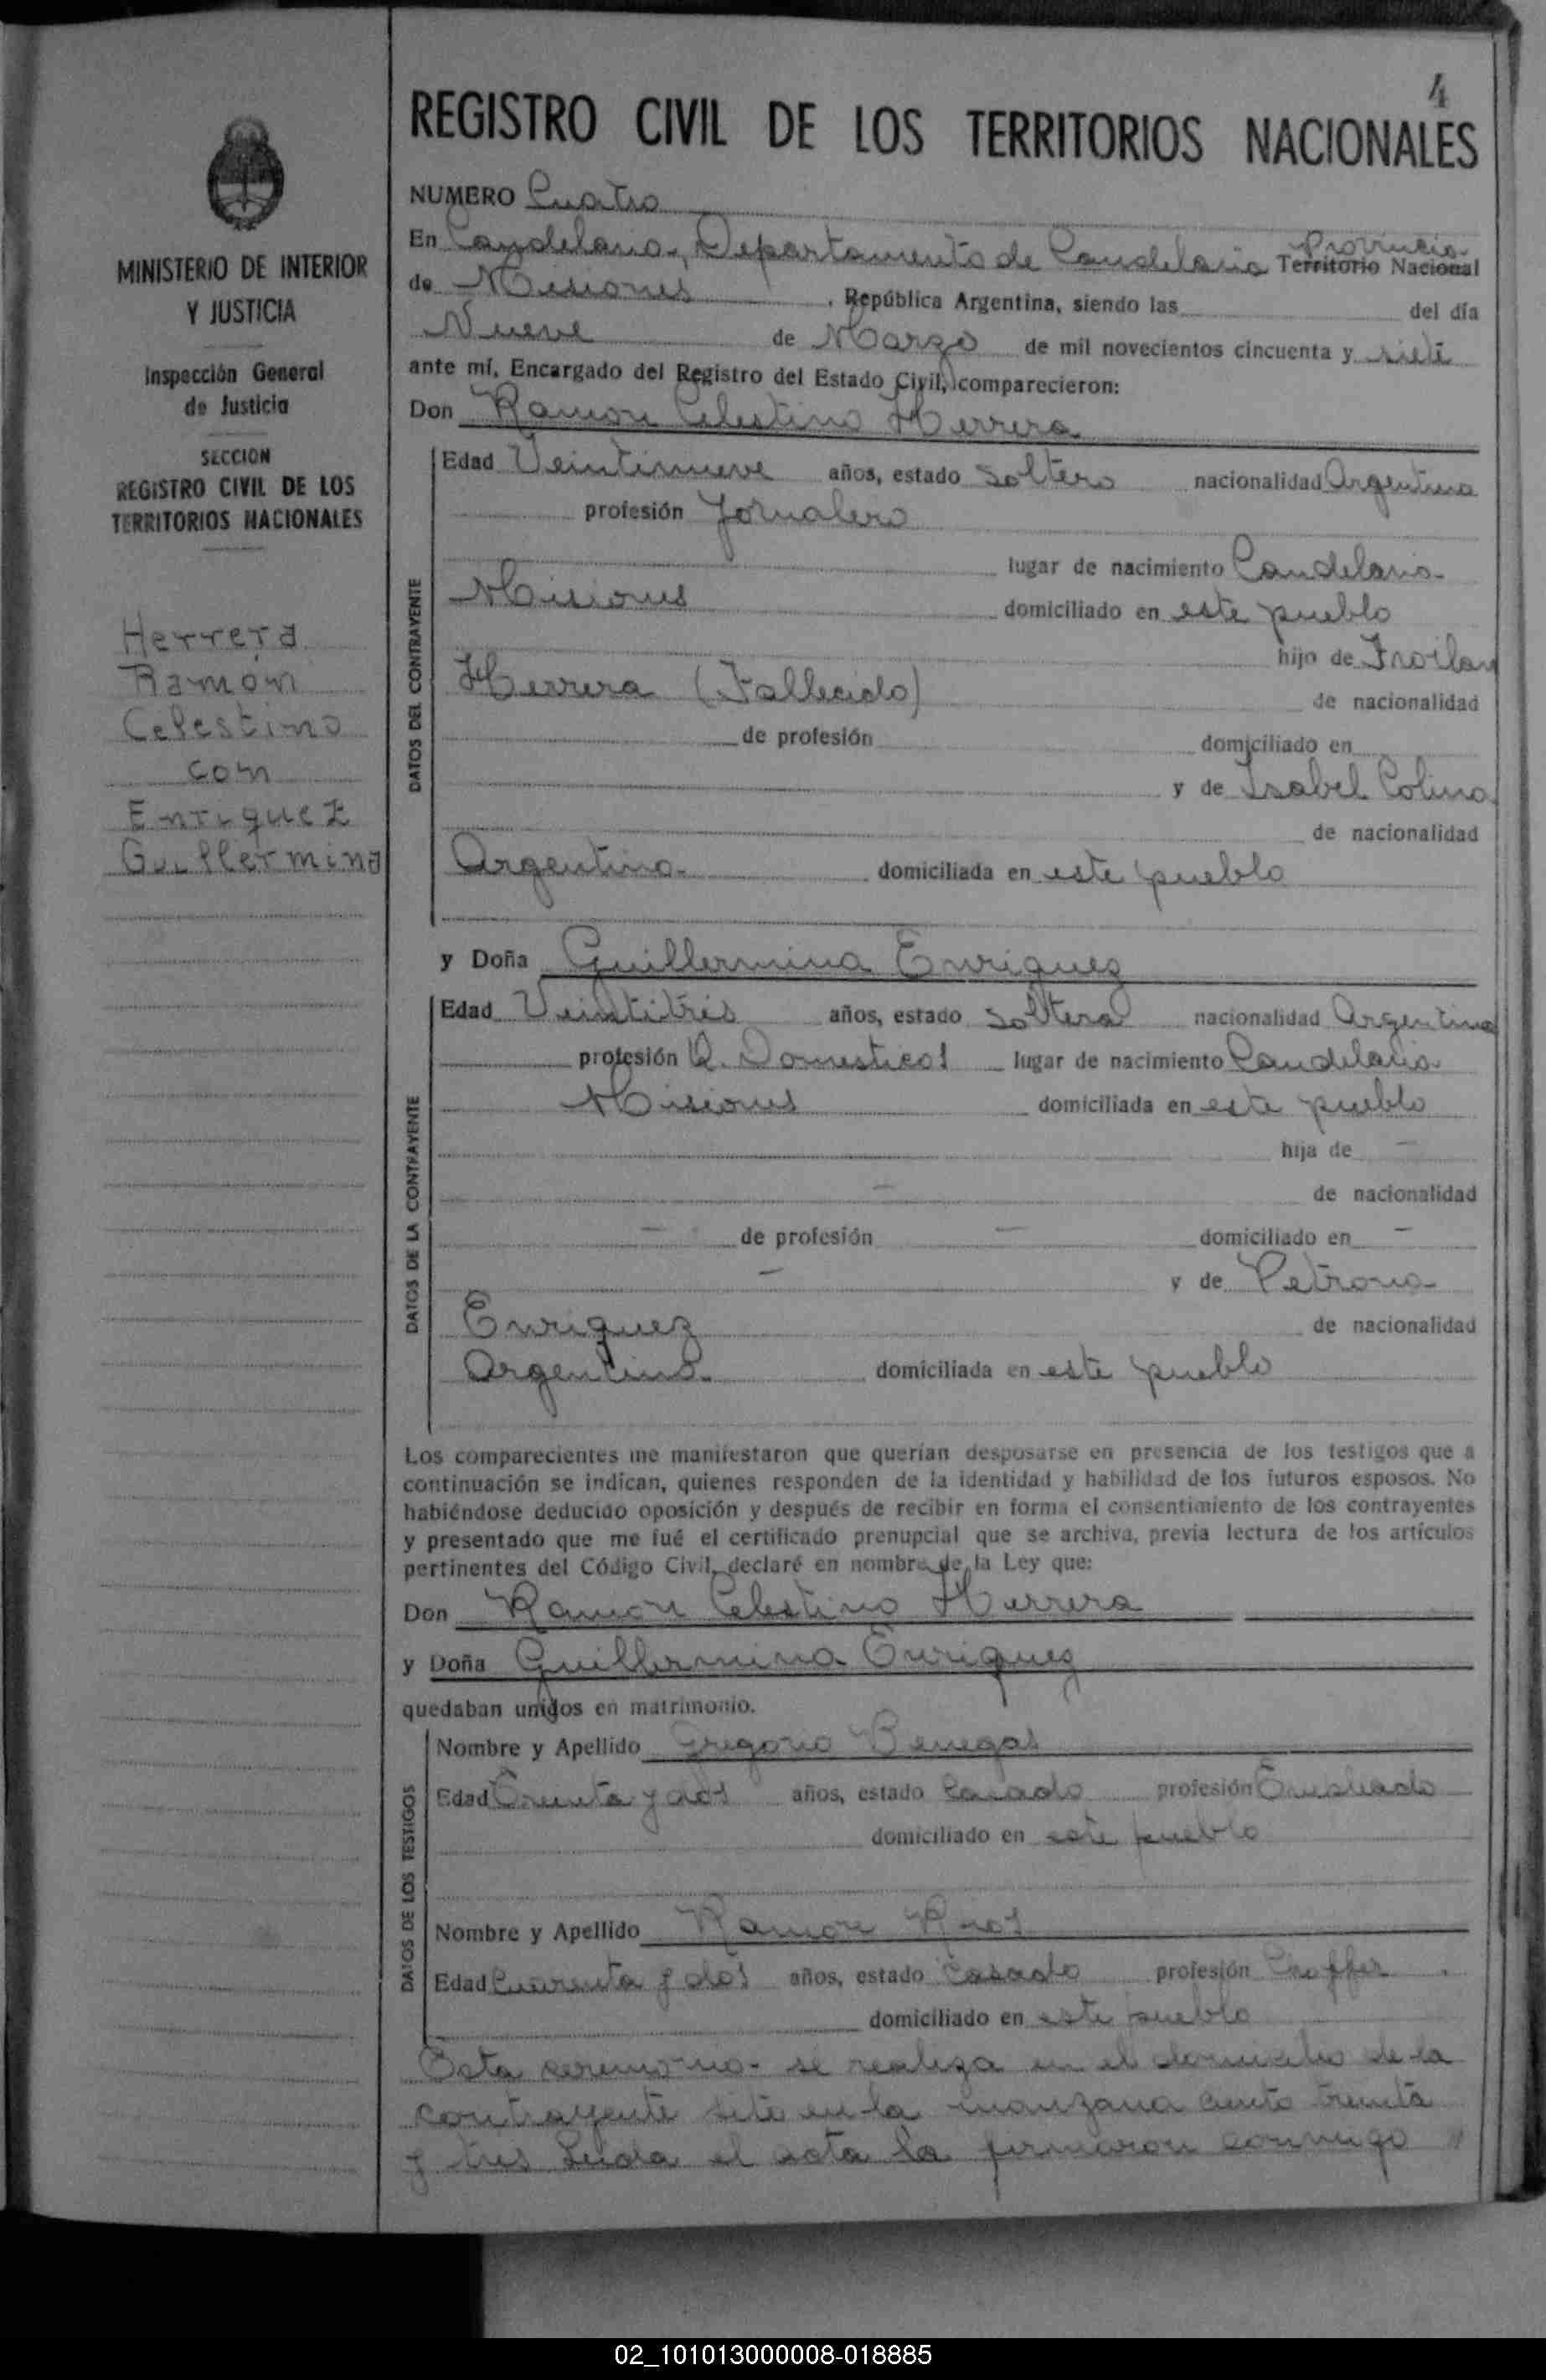 4
REGISTRO CIVIL DE LOS TERRITORIOS NACIONALES
MINISTERIO DE INTERIOR
Y JUSTICIA
Inspección General
de Justicia
SECCION
REGISTRO CIVIL DE LOS
TERRITORIOS NACIONALES
Herrera
Ramón
Celestino
con
Enriquez
Guillermina
NUMERO Cuatro
En Candelaria, Departamento de Candelaria Provincia Territorio Nacional
de Misiones, República Argentina, siendo las del día
Nueve de Marzo de mil novecientos cincuenta y siete
ante mí, Encargado del Registro del Estado Civil, comparecieron:
Don Ramon Celestino Herrera
DATOS DEL CONTRAYENTE
Edad Veintinueve años, estado Soltero nacionalidad Argentina
profesión Jornalero
lugar de nacimiento Candelaria
Misiones domiciliado en este pueblo
hijo de Froilan
Herrera (Fallecido) de nacionalidad
de profesión domiciliado en
y de Isabel Colina
de nacionalidad
Argentina domiciliada en este pueblo
y Doña Guillermina Enriquez
DATOS DE LA CONTRAYENTE
Edad Veintitres años, estado Soltera nacionalidad Argentina
profesión Q. Domesticos lugar de nacimiento Candelaria
Misiones domiciliada en este pueblo
hija de -
- de nacionalidad
- de profesión - domiciliado en -
- y de Petrona
Enriquez de nacionalidad
Argentina domiciliada en este pueblo
Los comparecientes me manifestaron que querían desposarse en presencia de los testigos que a
continuación se indican, quienes responden de la identidad y habilidad de los futuros esposos. No
habiéndose deducido oposición y después de recibir en forma el consentimiento de los contrayentes
y presentado que me fué el certificado prenupcial que se archiva, previa lectura de los artículos
pertinentes del Código Civil, declaré en nombre de la Ley que:
Don Ramon Celestino Herrera
y Doña Guillermina Enriquez
quedaban unidos en matrimonio.
DATOS DE LOS TESTIGOS
Nombre y Apellido Gregorio Benegas
Edad Treinta y dos años, estado Casado profesión Empleado
domiciliado en este pueblo
Nombre y Apellido Ramon Rios
Edad Cuarenta y dos años, estado Casado profesión Choffer
domiciliado en este pueblo
Esta ceremonia se realiza en el domicilio de la
contrayente sito en la manzana ciento treinta
y tres Leida el acta la firmaron conmigo
02_101013000008-018885